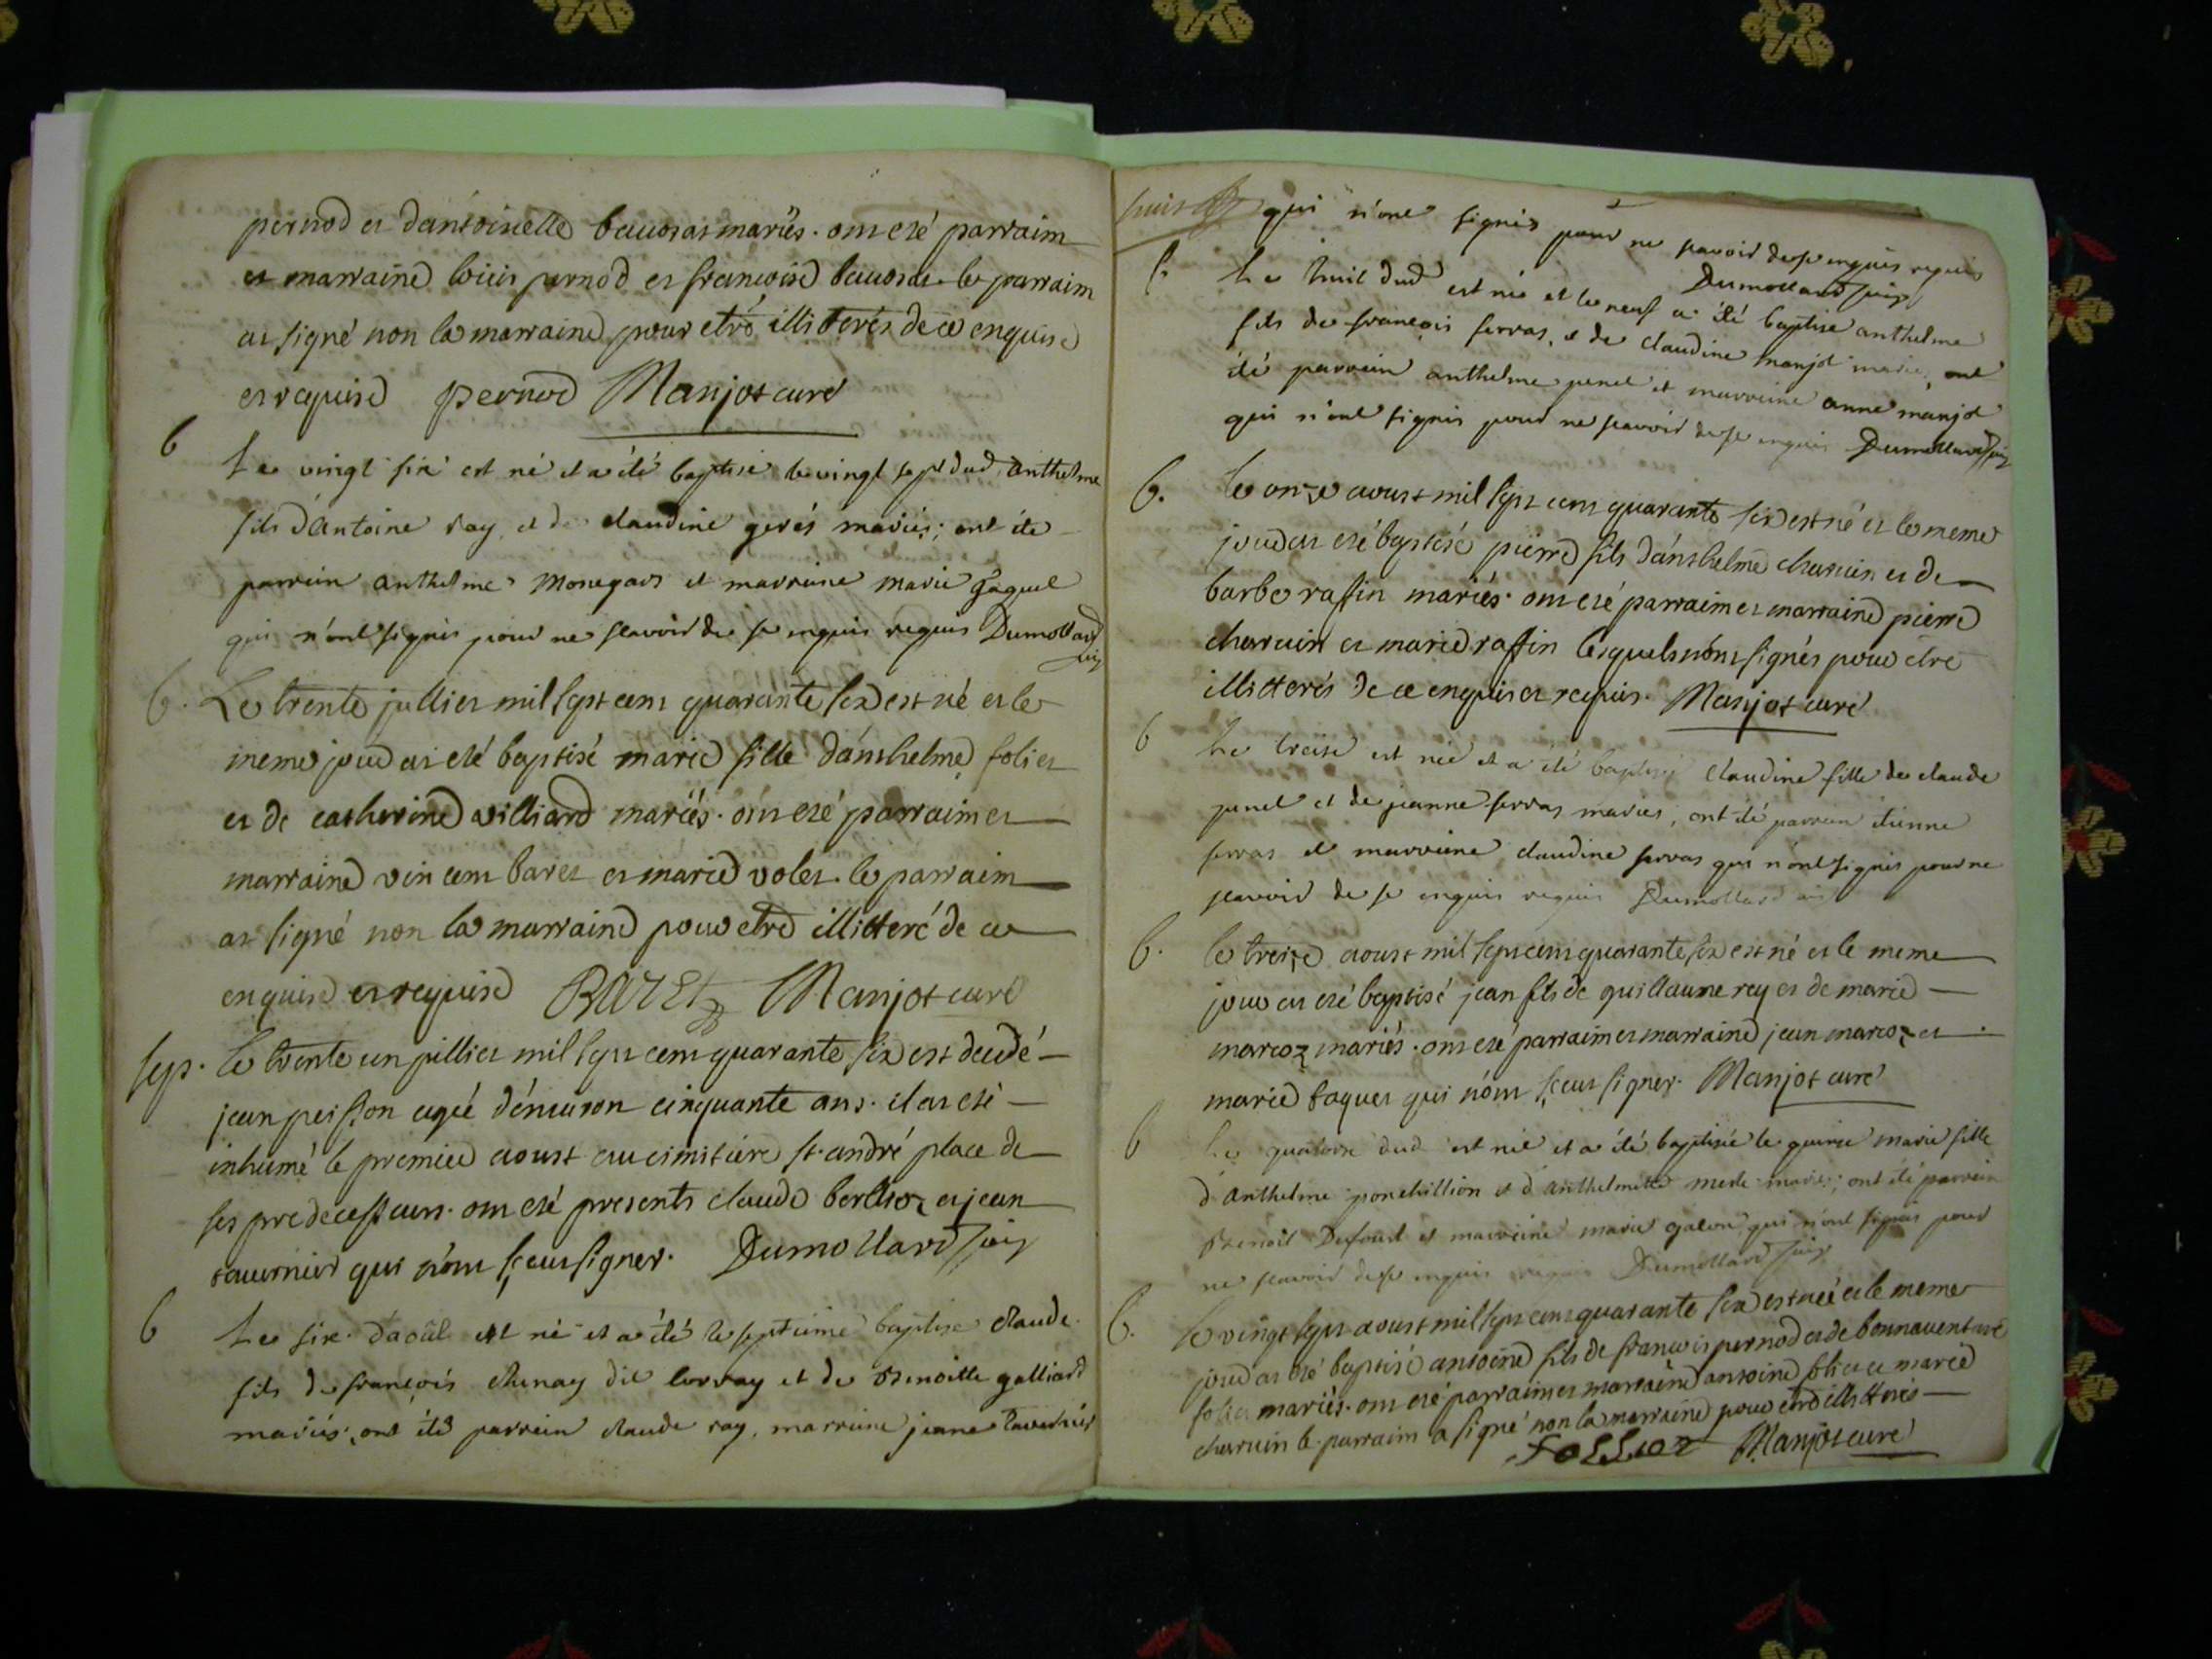 pernod et d'antoinette bauosat mariés. ont eté parraim
et marraine loüis pernod et francoise bauosat. le parraim
at signé non la marraine pour etre illiterés de ce enquise
et requise pernod Manjot curé
b Le vingt six est né et a été baptisé le vingt sept dud anthelme
fils d'Antoine ray, et de claudine gerés mariés; ont été
parrein anthelme monegars et marreine marie Jaquet
qui n'ont signés pour ne scavoir de se enquis requis Dumollard
vic
b. Le trente julliet mil sept cent quarante six est né et le
meme jour at eté baptisé marie fille d'anthelme foliet
et de catherine villiard mariés. ont eté parraim et
marraine vincent baret et marie volet. le parraim
at signé non la marraine pour etre illitteré de ce
enquise et requise BARET Manjot curé
sep. le trente un julliet mil sept cent quarante six est decedé
jean peisson agée d'enuiron cinquante ans. il at eté
inhumé le premier aoust au cimitiere st. andré place de
ses predecesseurs. ont eté presents claude berlioz et jean
tauernier qui n'ont sceu signer. Dumollard vic
b Le six d'août est né et a été le septieme baptisé claude
fils de françois chenay dit lorray et de Benoitte galliard
mariés, ont été parrein claude ray, marreine jeane tavernier
qui n'ont signés pour ne scavoir de se enquis requis
Dumollard vic
b Le huit dud est né et le neuf a été baptisé anthelme
fils de françois serras, et de claudine manjot mariés, ont
été parrein anthelme penet et marreine anne manjot
qui n'ont signés pour ne scavoir de se enquis Dumollard vic
b. le onze aoust mil sept cent quarante six est né et le meme
jour at eté baptisé pierre fils d'anthelme charuin et de
barbe raffin mariés. ont eté parraim et marraine pierre
charuin et marie raffin lesquels n'ont signés pour etre
illitterés de ce enquis et requis. Manjot curé
b Le treise est née et a été baptisé claudine fille de claude
penet et de jeanne serras mariés, ont été parrein étienne
serras et marreine claudine serras qui n'ont signés pour ne
scavoir de se enquis requis Dumollard vic
b. le treize aoust mil sept cent quarante six est né et le meme
jour at eté baptisé jean fils de guillaume rey et de marie
marcoz mariés. ont eté parraim et marraine jean marcoz et
marie jaquet qui n'ont sceut signer. Manjot curé
b Le quatorse dud est née et a été baptisée le quinse marie fille
d'Anthelme ponchillion et d'Anthelmette merle mariés; ont été parrein
Benoît Dufour et marreine marie galon qui n'ont signés pour
ne scavoir de se enquis requis Dumollard vic
b. le vingt sept aoust mil sept cent quarante six est née et le meme
jour at eté baptisé antoine fils de francois pernod et de bonnauenture
foliet mariés. ont eté parraim et marraine antoine foliet et marie
charuin le parraim a signé non la marraine pour etre illitterés
FOLLIET Manjot curé